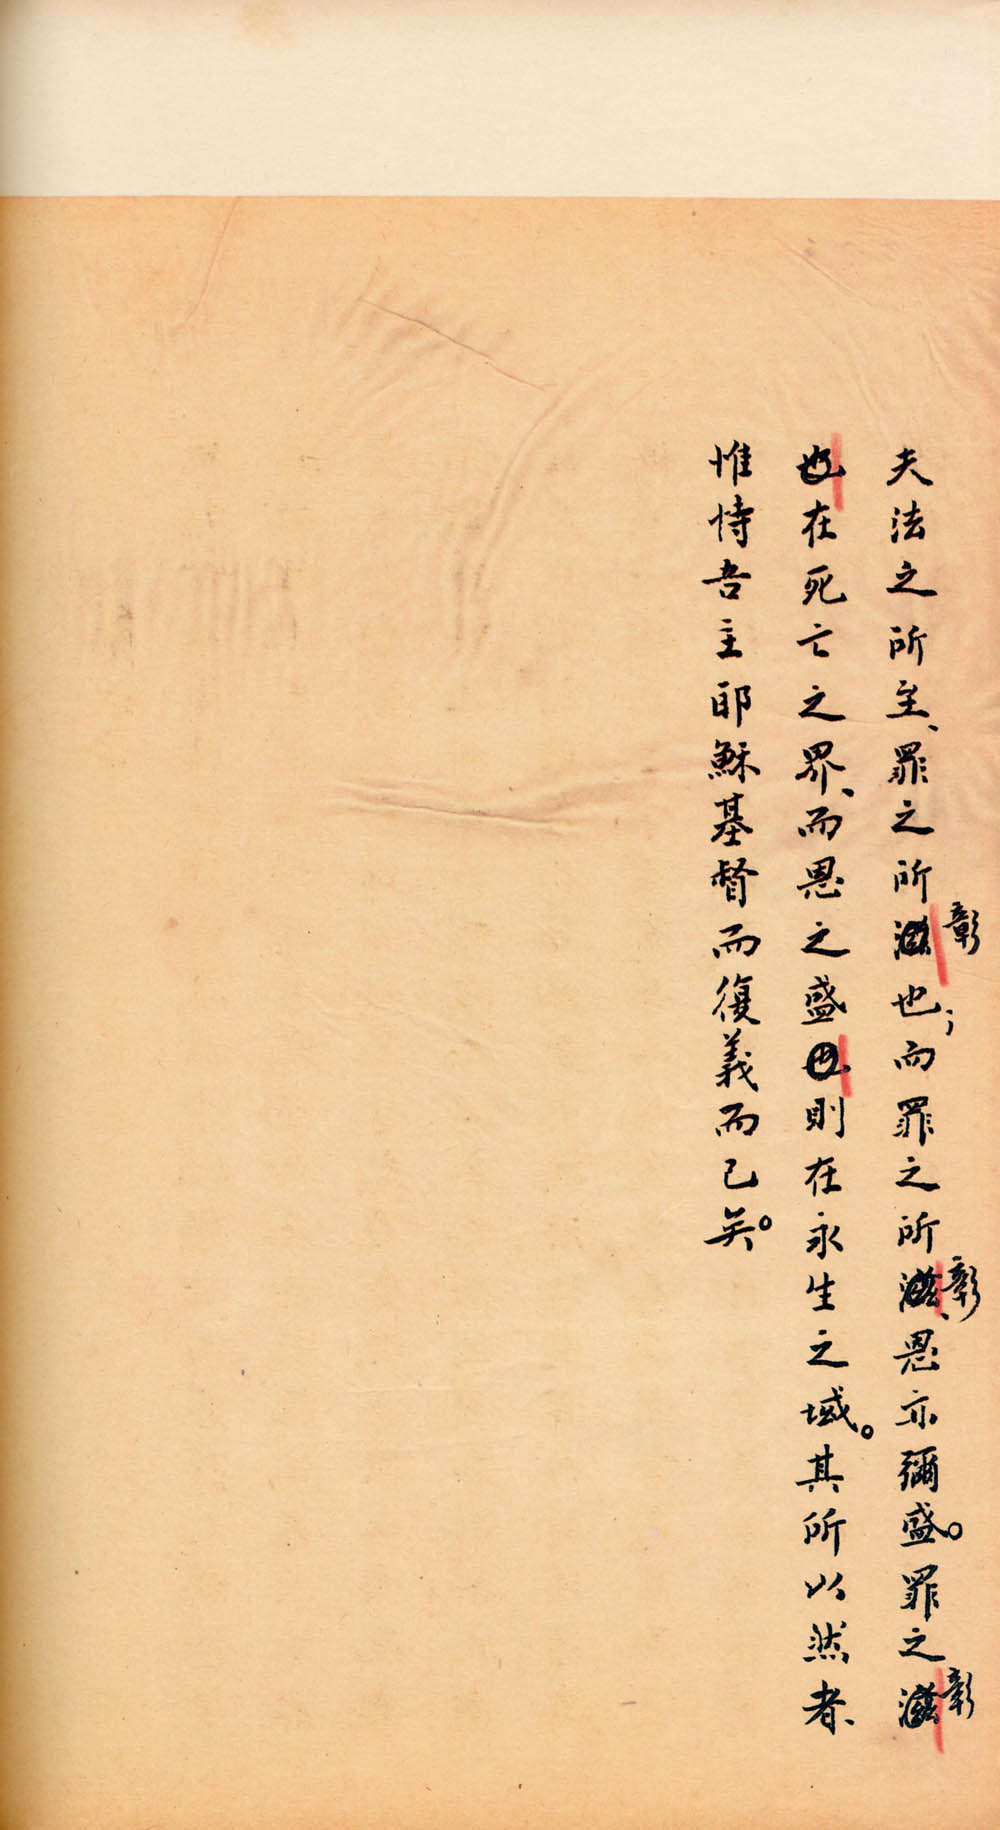 夫法之所至、罪之所彰也；而罪之所彰、恩亦彌盛。罪之彰
在死亡之界、而恩之盛則在永生之域。其所以然者、
惟恃吾主耶穌基督而復義而已矣。